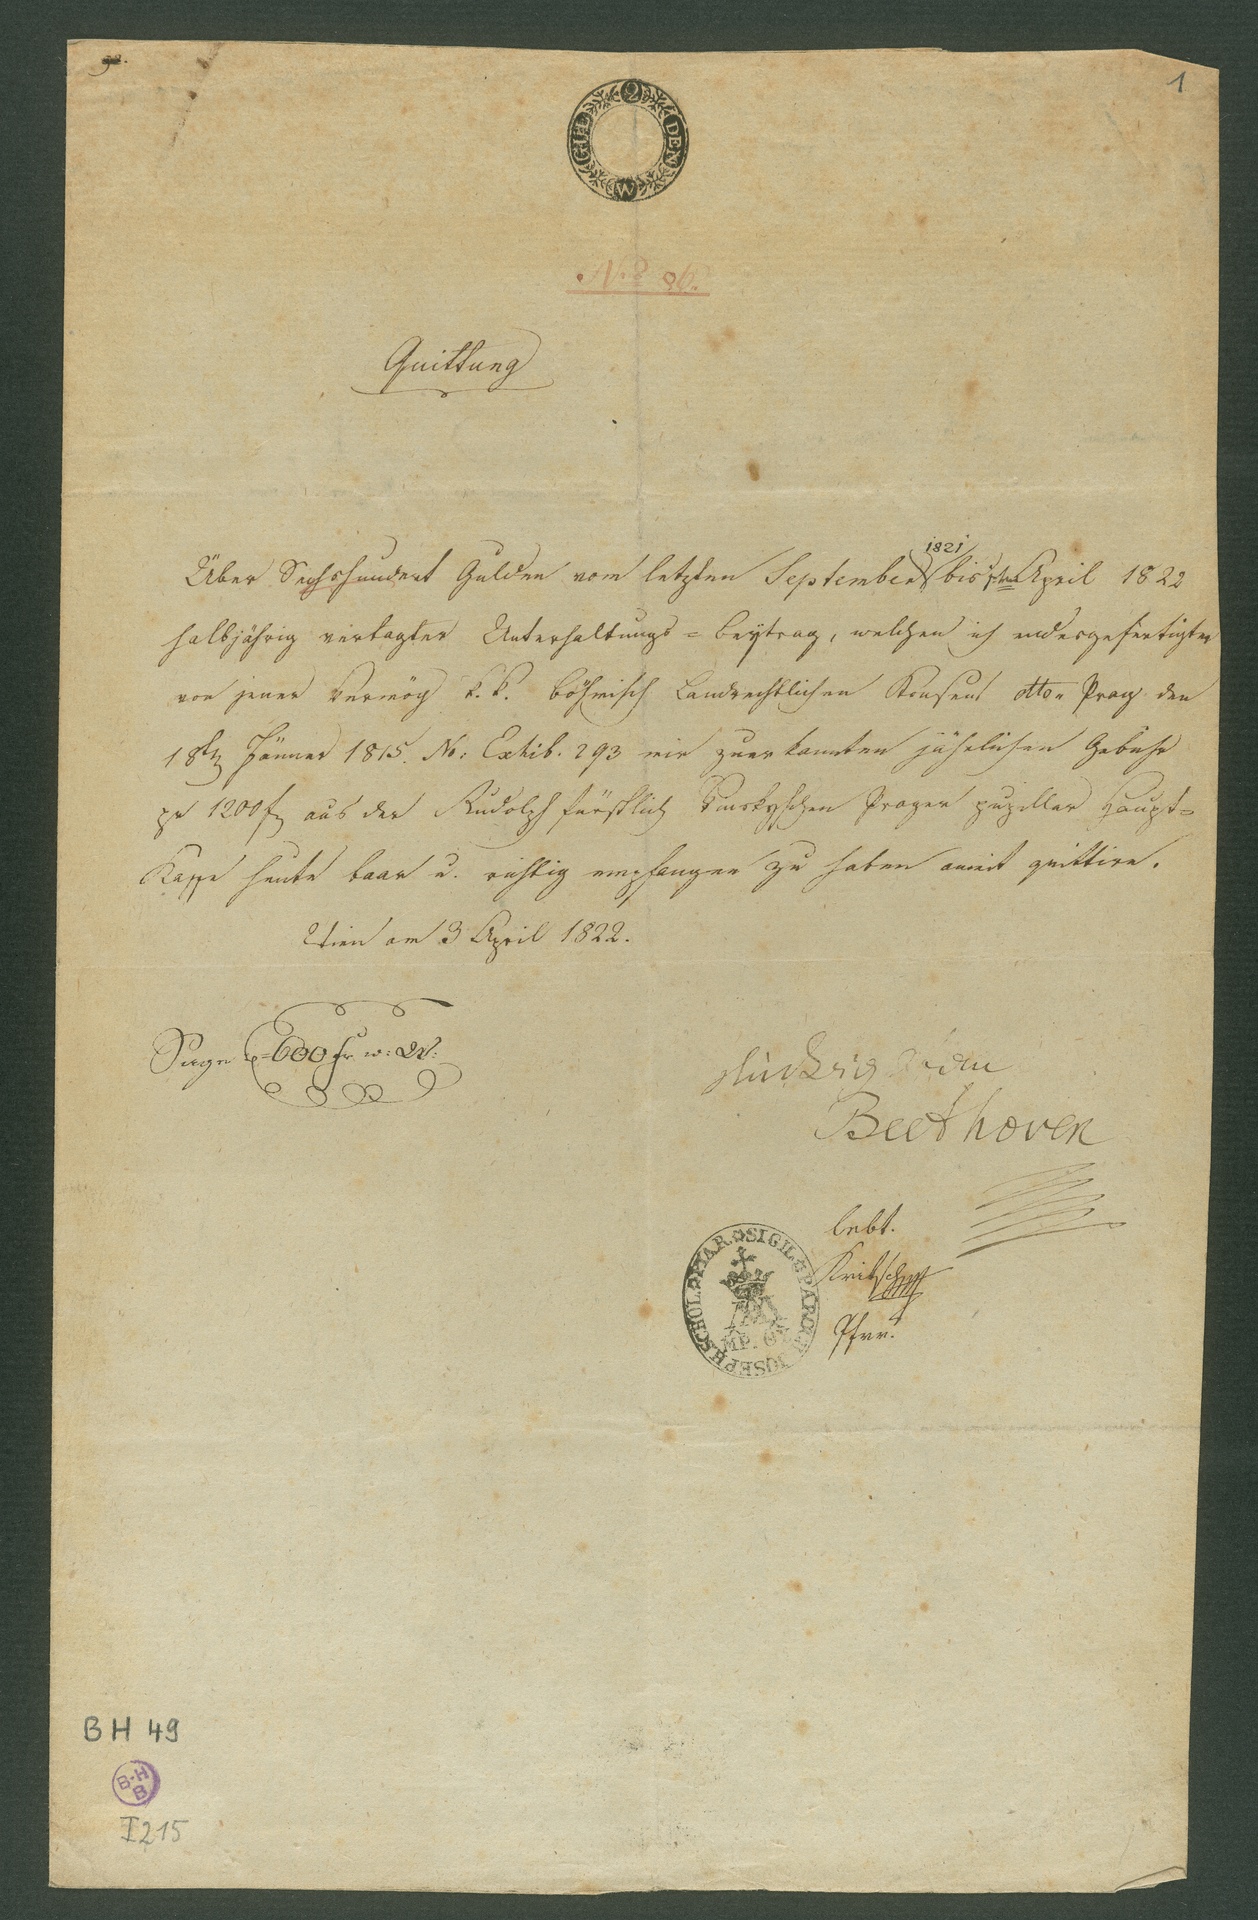 1
2
GUL DEN
W
No 86.
Quittung
1821
Über Sechshundert Gulden vom letzten September bis April 1822
halbjährig vertagter Unterhaltungs = beytrag, welchen ich endesgefertigter
von jener vermög k. k. böhmisch Landrechtlichen Konsens dtto Prag den
18ten Jänner 1815. No: Exhib. 293 mir zuerkannten jährlichen Gebühr
pr 1200 f aus der Rudolph fürstlich Kinskyschen Prager pupillar Haupt=
Kasse heute baar u. richtig empfangen zu haben anmit quittire.
Wien am 3 April 1822.
Sage 600 fr w: W:
Ludwig van
Beethoven
lebt.
Pfrr.
SIGIL PAROCH JOSEPH SCHOL PIAR
BH 49
B-H
B
I 215